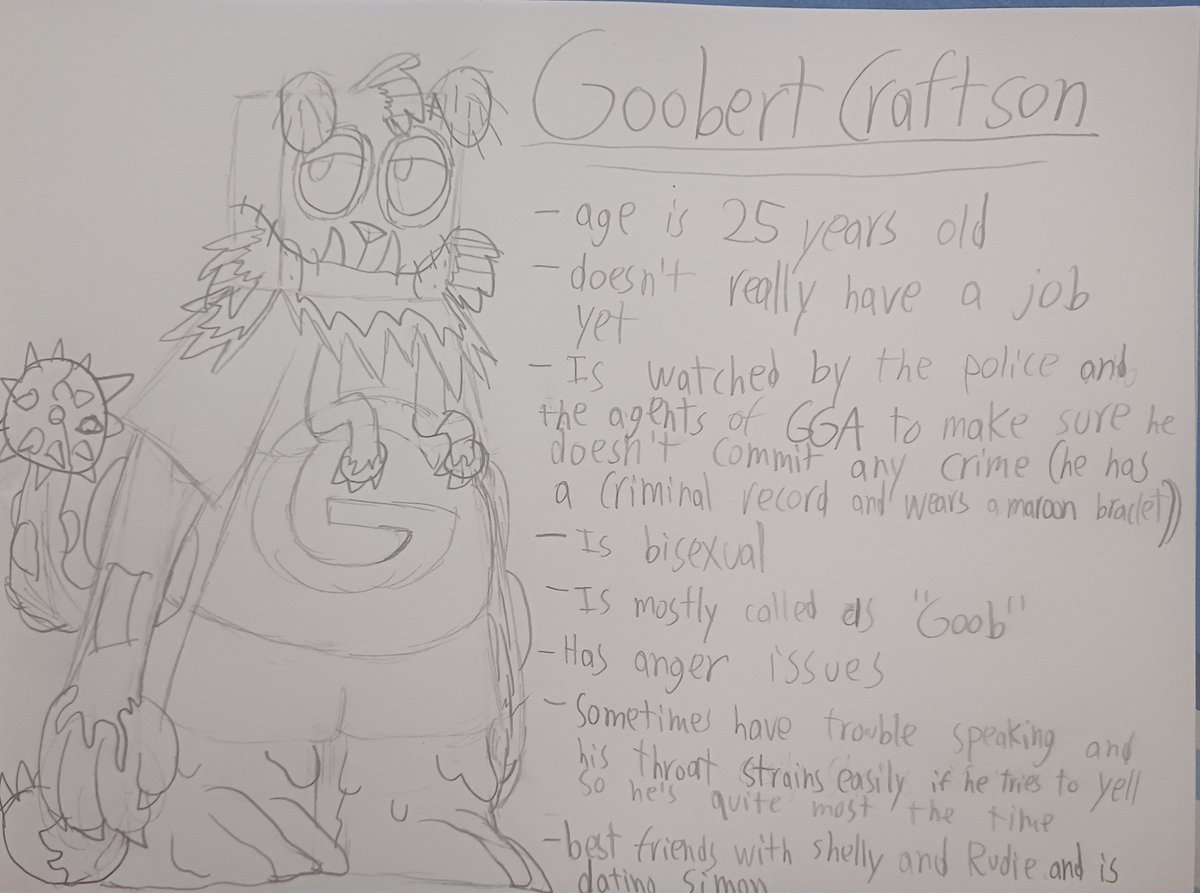 Goobert Craftson
- age is 25 years old
- doesn't really have a job
yet
- Is watched by the police and
the agents of GGA to make sure he
doesn't commit any crime (he has
a criminal record and wears a maroon braclet)
- Is bisexual
- Is mostly called as "Goob"
- Has anger issues
- Sometimes have trouble speaking and
his throat strains easily if he tries to yell
so he's quite most the time
- best friends with Shelly and Rudie and is
dating Simon
G